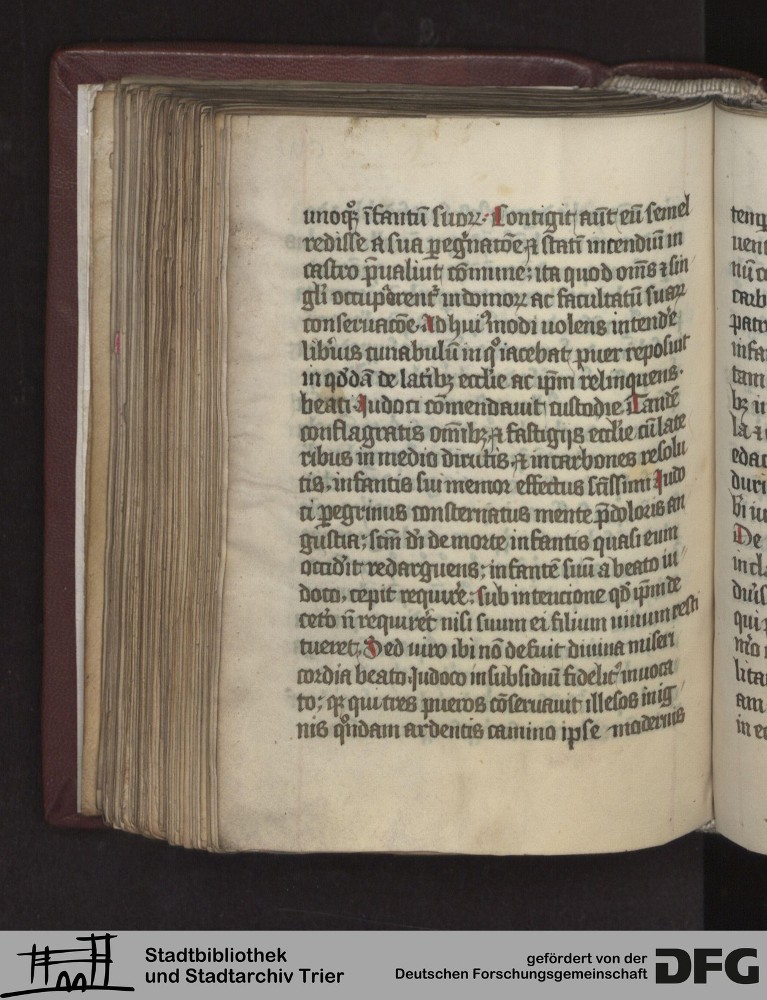 unoq̊ȝ īfantū suoꝝ. Contigit aūt eū semel
redisse a sua ꝑeg̊natōe ⁊ statī incendiū in
castro p̄ualiut cōmune; ita quod om̄s ⁊ sin
gli occupar̄ent᷑ in domoꝝ ac facultatū suaꝝ
conseruacōe. Ad huiꝰmodi uolens intend̄e
lib̓ius cunabulū in q̊ iacebat puer reposuit
in qd̄dā de latibȝ eccl̄ie ac ip̄m relinquens.
beati Iudoci cōmendauit custodie Tandē
conflagratis om̄ibȝ ⁊ fastigijs eccl̄ie cū late
ribus in medio dirutis ⁊ in carbones resolu
tis, infantis sui memor effectus sc̄issimi Iudo
ci ꝑegrinus consternatus mente p̄ doloris an
gustia; sc̄m dī de morte infantis quasi eum
occid̓it redarguens; infantē suū a beato iu
doco, cepit requir̄e; sub intencione qd̄ ip̄m de
cet̓o n̄ requiret nisi suum ei filium uiuum resti
tueret. Sed uiro ibi nō defuit diuina miseri
cordia beato Iudoco in subsidiū fidelit᷑ inuoca
to; qꝛ qui tres pueros cōseruauit illesos in ig
nis q̊ndam ardentis camino ipse modernis
Stadtbibliothek
und Stadtarchiv Trier
gefördert von der
Deutschen Forschungsgemeinschaft
DFG